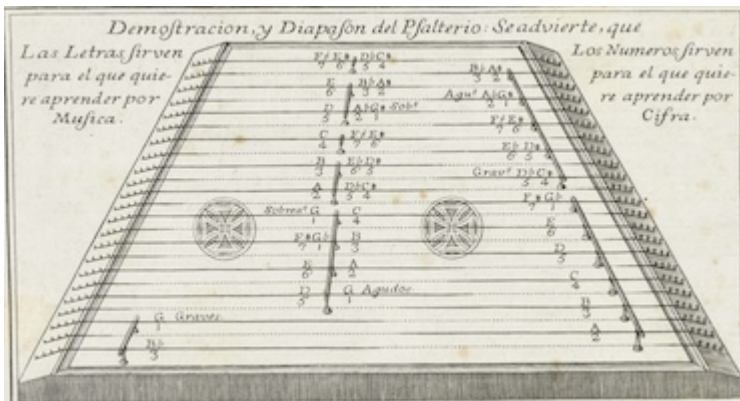 Demostracion, y Diapasòn del Psalterio: Se advierte, que
Las Letras sirven
para el que quie-
re aprender por
Musica.
Los Numeros sirven
para el que quie-
re aprender por
Cifra.
F♯ E♯ D♭ C♯
7 6 5 4
E B♭ A♯
6 3 2
D A♭ G♯ Sobs
5 2 1
C F♯ E♯
4 7 6
B E♭ D♯
3 6 5
A D♭ C♯
2 5 4
Sobreas G C
1 4
F♯ G♭ B
7 1 3
E A
6 2
D G Agudos
5 1
G Graves
1
B♭
3
B♭ A♯
3 2
Agus A♭ G♯
2 1
F♯ E♯
7 6
E♭ D♯
6 5
Gravs D♭ C♯
5 4
F♯ G♭
7 1
E
6
D
5
C
4
B
3
A
2